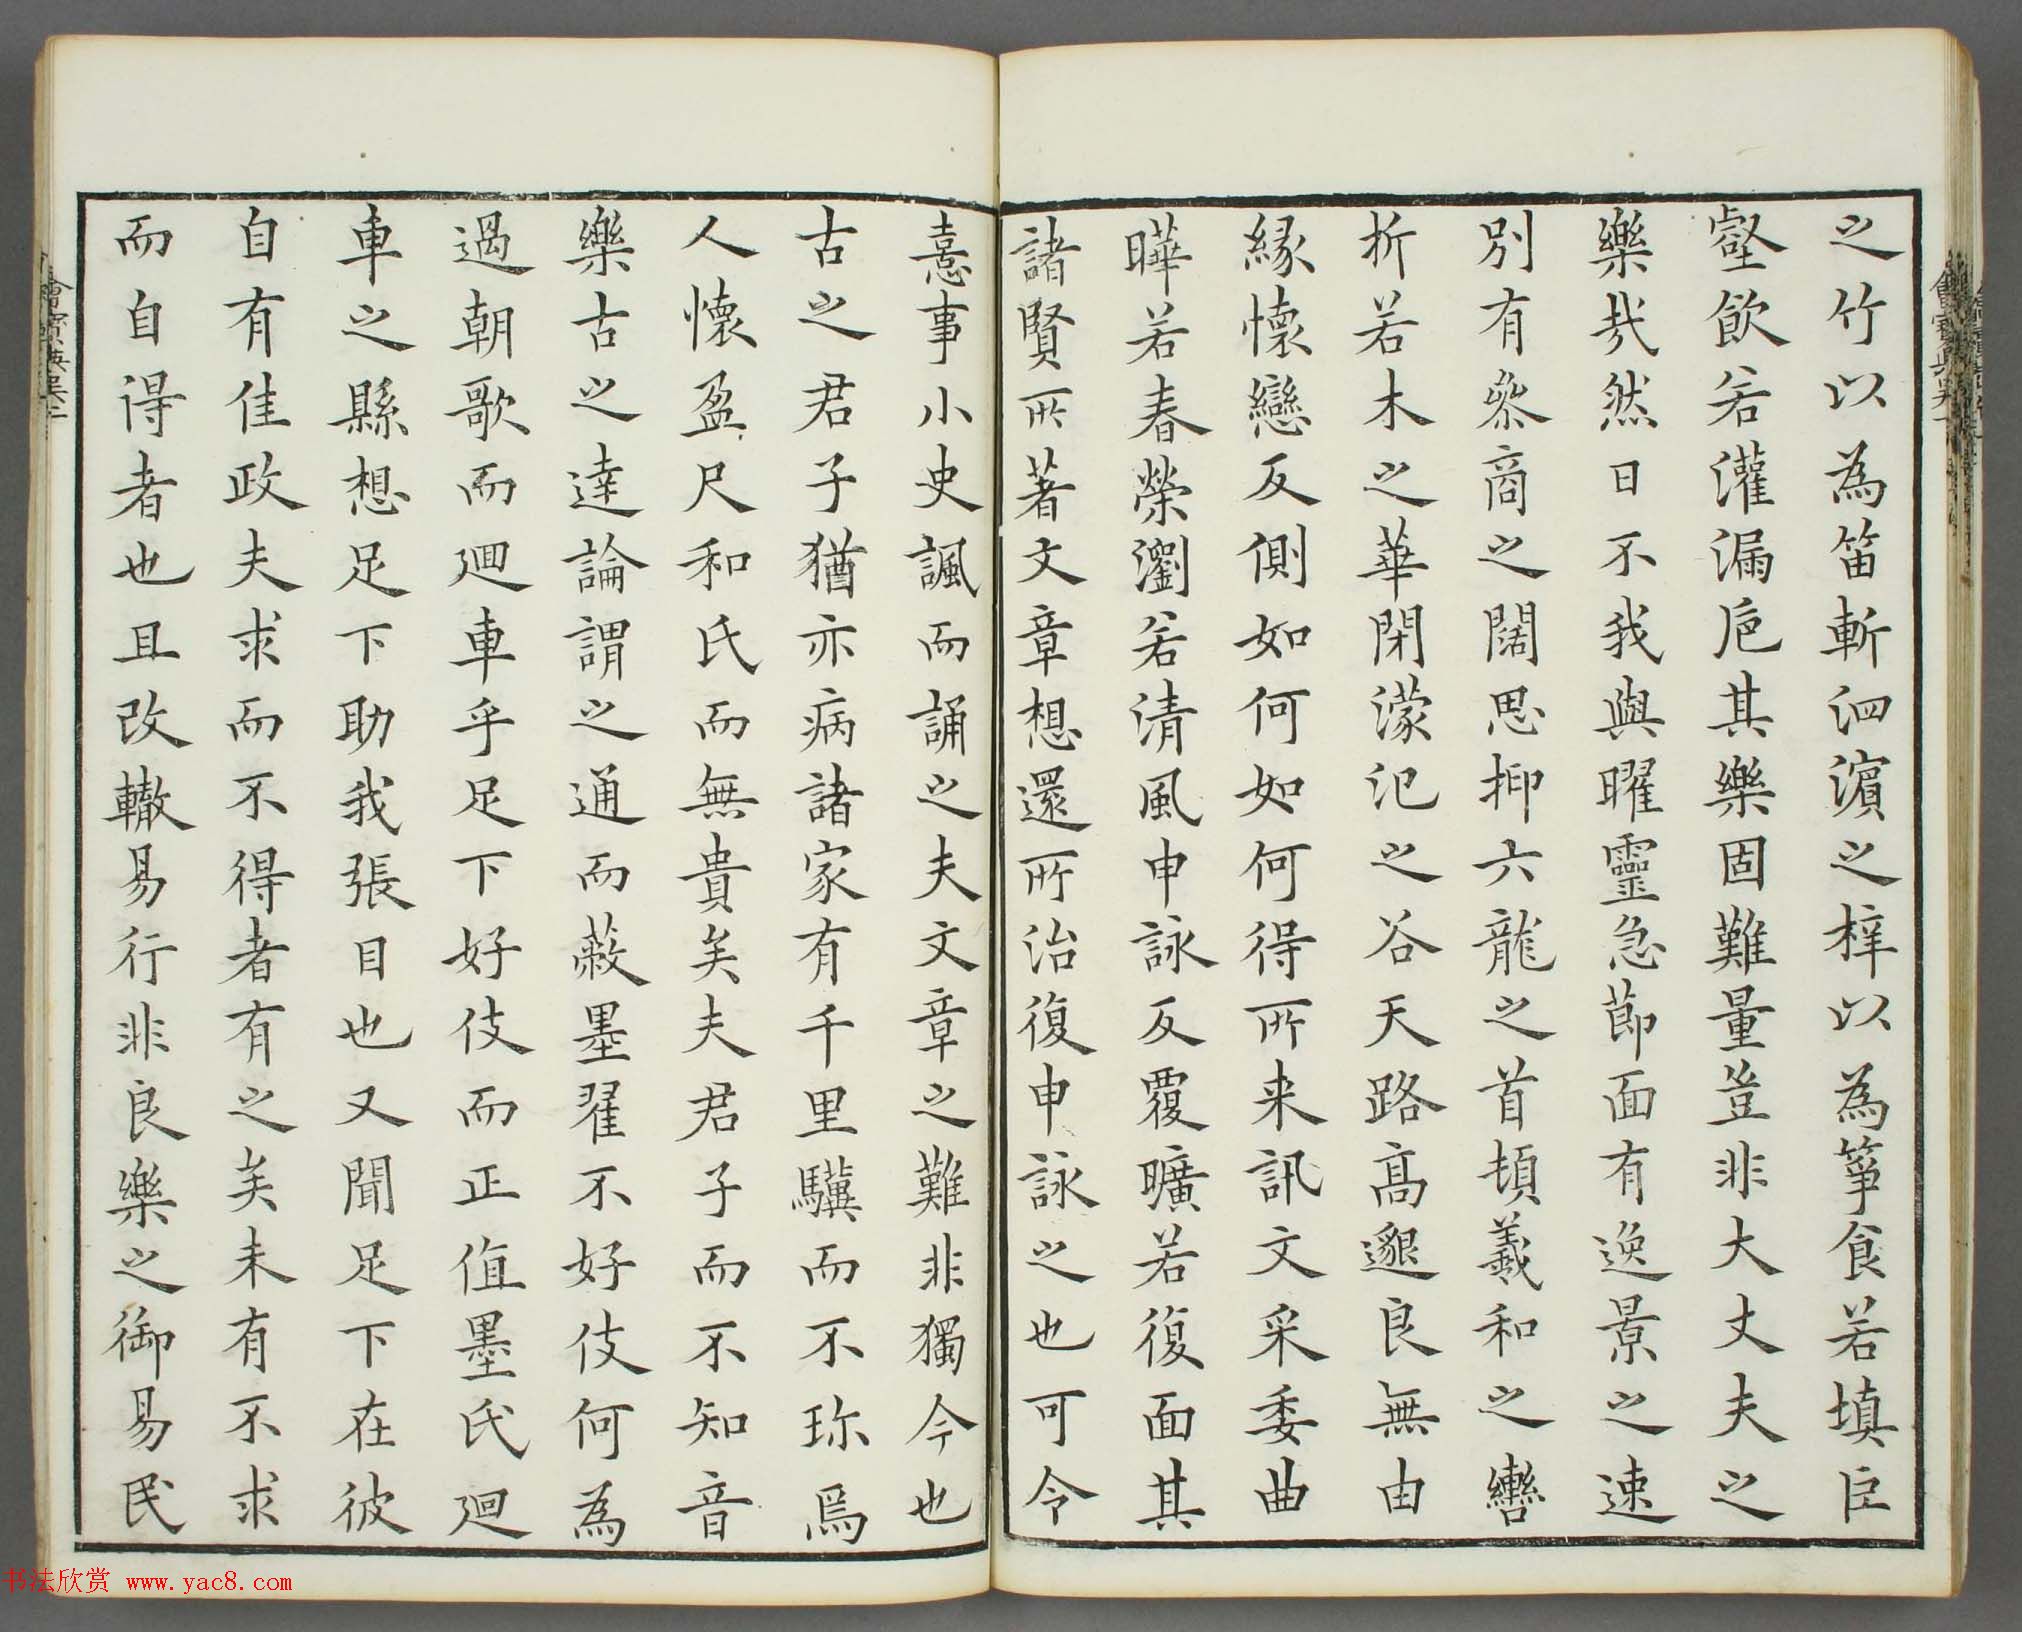 之竹以為笛斬泗濵之梓以為筝食若填巨
壑飲若灌漏巵其樂固難量豈非大丈夫之
樂㢤然日不我與曜靈急莭面有逸景之速
别有叅商之闊思抑六龍之首頓羲和之轡
折若木之華閉濛汜之谷天路髙邈良無由
緣懷戀反側如何如何得所来訊文采委曲
曄若春榮瀏若清風申詠反覆曠若復面其
諸賢所著文章想還所治復申詠之也可令
憙事小史諷而誦之夫文章之難非獨今也
古之君子猶亦病諸家有千里驥而不珎焉
人懷盈尺和氏而無貴矣夫君子而不知音
樂古之達論謂之通而蔽墨翟不好伎何為
過朝歌而廻車乎足下好伎而正值墨氏廻
車之縣想足下助我張目也又聞足下在彼
自有佳政夫求而不得者有之矣未有不求
而自得者也且改轍易行非良樂之御易民
书法欣赏 www.yac8.com